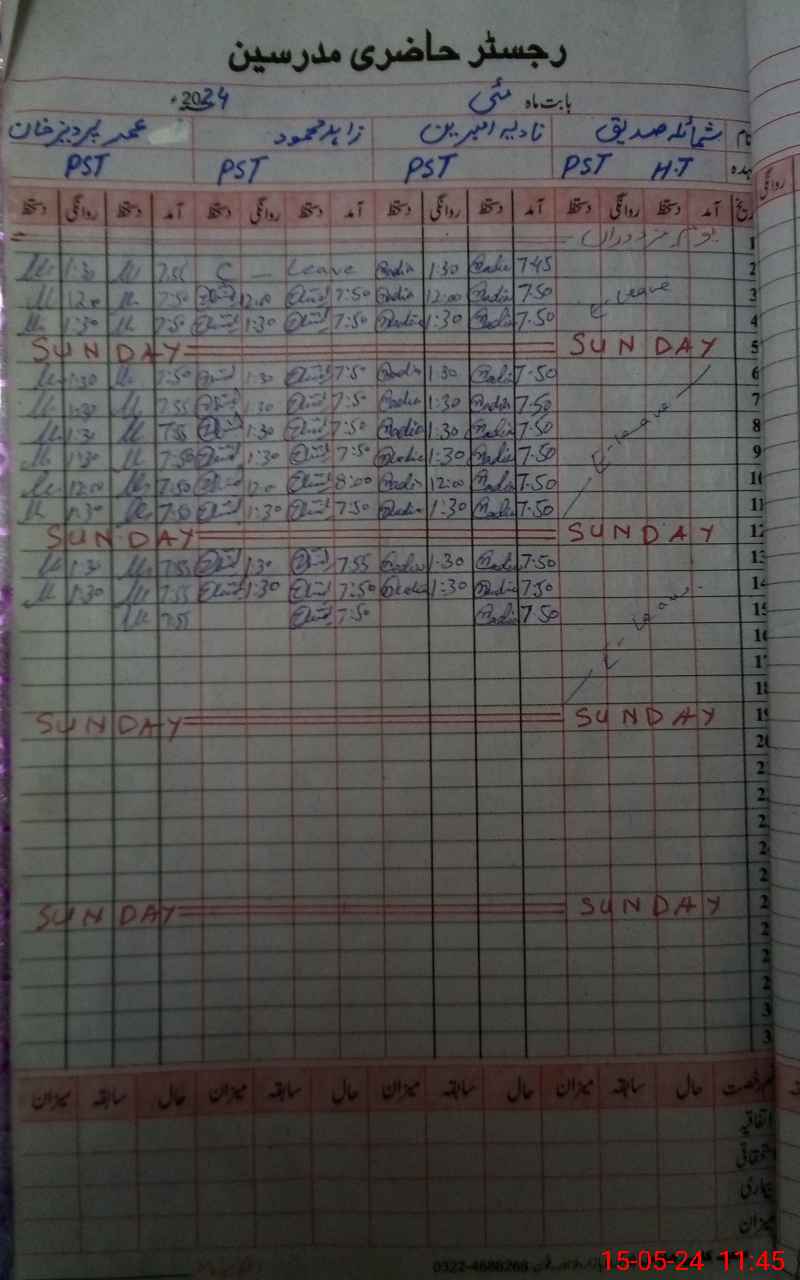 رجسٹر حاضری مدرسین
بابت ماہ مئی 2024ء
نام شمائلہ صدیق نادیہ امبرین زاہد محمود محمد پرویز خان
عہدہ H.T PST PST PST PST
تاریخ آمد دستخط روانگی دستخط آمد دستخط روانگی دستخط آمد دستخط روانگی دستخط آمد دستخط روانگی دستخط
1 یوم مزدوراں
2 7:45 Nadia 1:30 Nadia Leave — C 7:55 1:30
3 E Leave 7:50 Nadia 12:00 Nadia 7:50 12:00 7:50 12:00
4 7:50 Nadia 1:30 Nadia 7:50 1:30 7:50 1:30
5 SUNDAY SUNDAY
6 7:50 Nadia 1:30 Nadia 7:50 1:30 7:50 1:30
7 7:50 Nadia 1:30 Nadia 7:50 1:30 7:55 1:30
8 7:50 Nadia 1:30 Nadia 7:50 1:30 7:55 1:30
9 E-leave 7:50 Nadia 1:30 Nadia 7:50 1:30 7:50 1:30
10 7:50 Nadia 12:00 Nadia 8:00 12:0 7:50 12:00
11 7:50 Nadia 1:30 Nadia 7:50 1:30 7:50 1:30
12 SUNDAY SUNDAY
13 7:50 Nadia 1:30 Nadia 7:55 1:30 7:55 1:30
14 7:50 Nadia 1:30 Nadia 7:50 1:30 7:55 1:30
15 E-leave 7:50 Nadia 7:50 7:55
16
17
18
19 SUNDAY SUNDAY
SUNDAY SUNDAY
رخصت حال سابقہ میزان حال سابقہ میزان حال سابقہ میزان حال سابقہ میزان
اتفاقیہ
بیماری
میزان
0322-4688268
15-05-24 11:45